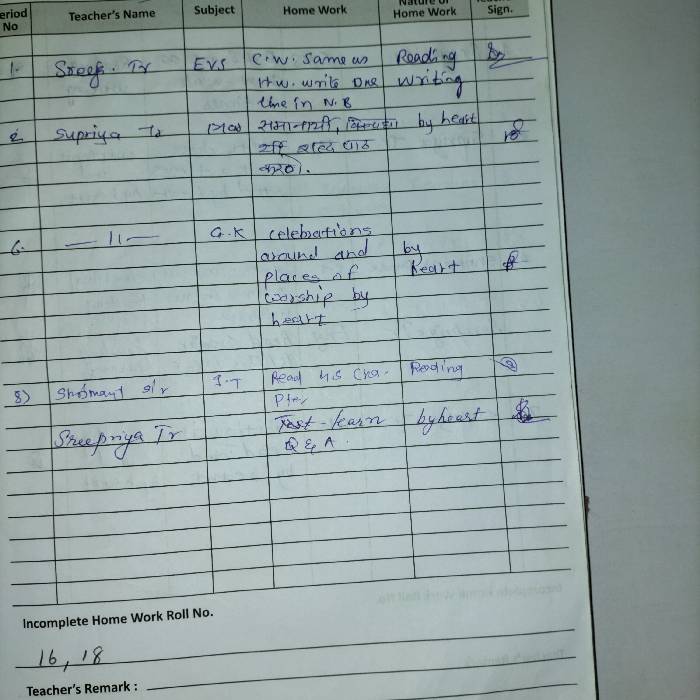 eriod No Teacher's Name Subject Home Work Nature of Home Work Sign.
1. Sreeja. Tr EVS C.W. Same as Reading
H.W. write One Writing
line in N.B
2 Supriya Tr समानार्थी, by heart
शब्द पाठ
करो.
6. —11— G.K celebrations
around and by
places of heart
worship by
heart
8) Shrimant sir I.T Read 4s Cha- Reading
pter
Sreepriya Tr Test - learn byheart
Q & A.
Incomplete Home Work Roll No.
16, 18
Teacher's Remark :